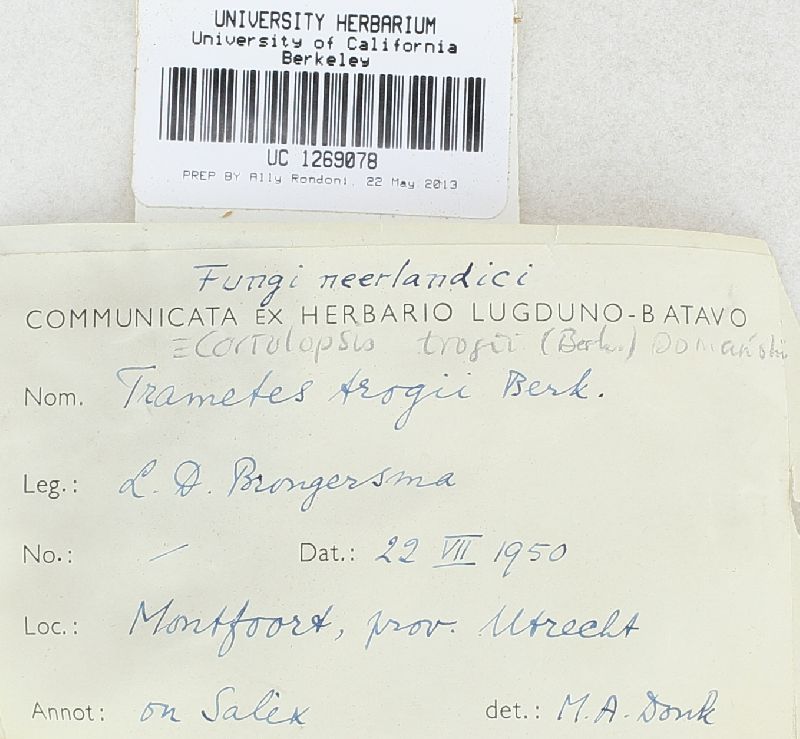 UNIVERSITY HERBARIUM
University of California
Berkeley
UC 1269078
PREP BY Ally Rondoni, 22 May 2013
Fungi neerlandici
COMMUNICATA EX HERBARIO LUGDUNO-BATAVO
=Coriolopsis trogii (Berk.) Domański
Nom. Trametes trogii Berk.
Leg.: L. D. Brongersma
No.: / Dat.: 22 VII 1950
Loc.: Montfoort, prov. Utrecht
Annot: on Salix det.: M.A. Donk